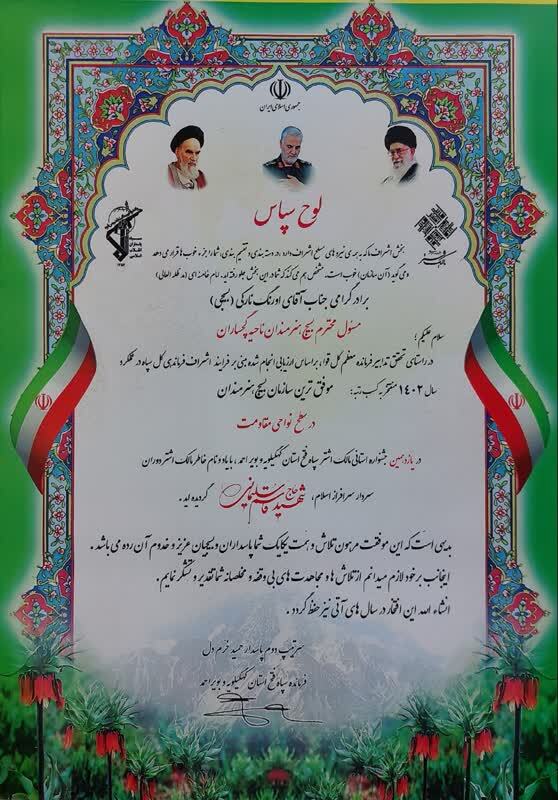 جمهوری اسلامی ایران
لوح سپاس
بخش اشراف ما که به همه‌ی نیروهای مسلح اشراف دارد، رده دسته بندی و تقسیم بندی، شما را جزء خوب ها قرار می دهد
و می گوید (آن سازمان) خوب است، مشخص هم می کند که شما در این بخش جلو رفته اید. امام خامنه ای (مد ظله العالی)
برادر گرامی جناب آقای اورنگ نارکی (بسیجی)
مسئول محترم بسیج هنرمندان ناحیه گچساران
سلام علیکم؛
در راستای تحقق تدابیر فرمانده معظم کل قوا، براساس ارزیابی انجام شده مبنی بر فرایند اشراف فرماندهی کل سپاه در عملکرد
سال ۱۴۰۲ مفتخر به کسب رتبه: موفق ترین سازمان بسیج هنرمندان
در سطح نواحی مقاومت
در یازدهمین جشنواره استانی مالک اشتر سپاه فتح استان کهگیلویه و بویر احمد، با یاد و نام خاطر مالک اشتر دوران
سردار سرافراز اسلام، شهید حاج قاسم سلیمانی گردیده اید.
بدیهی است که این موفقیت مرهون تلاش و همت یکایک شما پاسداران و بسیجیان عزیز و خدوم آن رده می باشد.
اینجانب بر خود لازم میدانم از تلاش ها و مجاهدت های بی وقفه و مخلصانه شما تقدیر و تشکر نمایم.
انشاء الله این افتخار در سال های آتی نیز حفظ گردد.
سرتیپ دوم پاسدار حمید خرم دل
فرمانده سپاه فتح استان کهگیلویه و بویراحمد